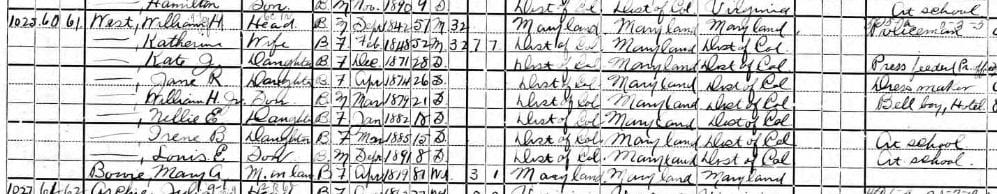 Hamilton Son B M Nov. 1890 9 S Dist of Col Dist of Col Virginia At school
1023 60 61 West, William H. Head B M Sep 1842 57 M 32 Maryland Maryland Maryland Policeman
—, Katherine Wife B F Feb 1848 52 M 32 7 7 Dist of Col Maryland Dist of Col
—, Kate J. Daughter B F Dec 1871 28 S Dist of Col Maryland Dist of Col Press feeder
—, Jane R Daughter B F Apr 1874 26 S Dist of Col Maryland Dist of Col Dress maker
—, William H. Jr Son B M Mar 1879 21 S Dist of Col Maryland Dist of Col Bell boy, Hotel
—, Nellie E Daughter B F Jan 1882 18 S Dist of Col Maryland Dist of Col
—, Irene B Daughter B F Mar 1885 15 S Dist of Col Maryland Dist of Col At school
—, Louis E. Son B M Sep 1891 8 S Dist of Col Maryland Dist of Col At school
Bowie Mary A. M. in law B F Apr 1819 81 Wd 3 1 Maryland Maryland Maryland
1027 61 62